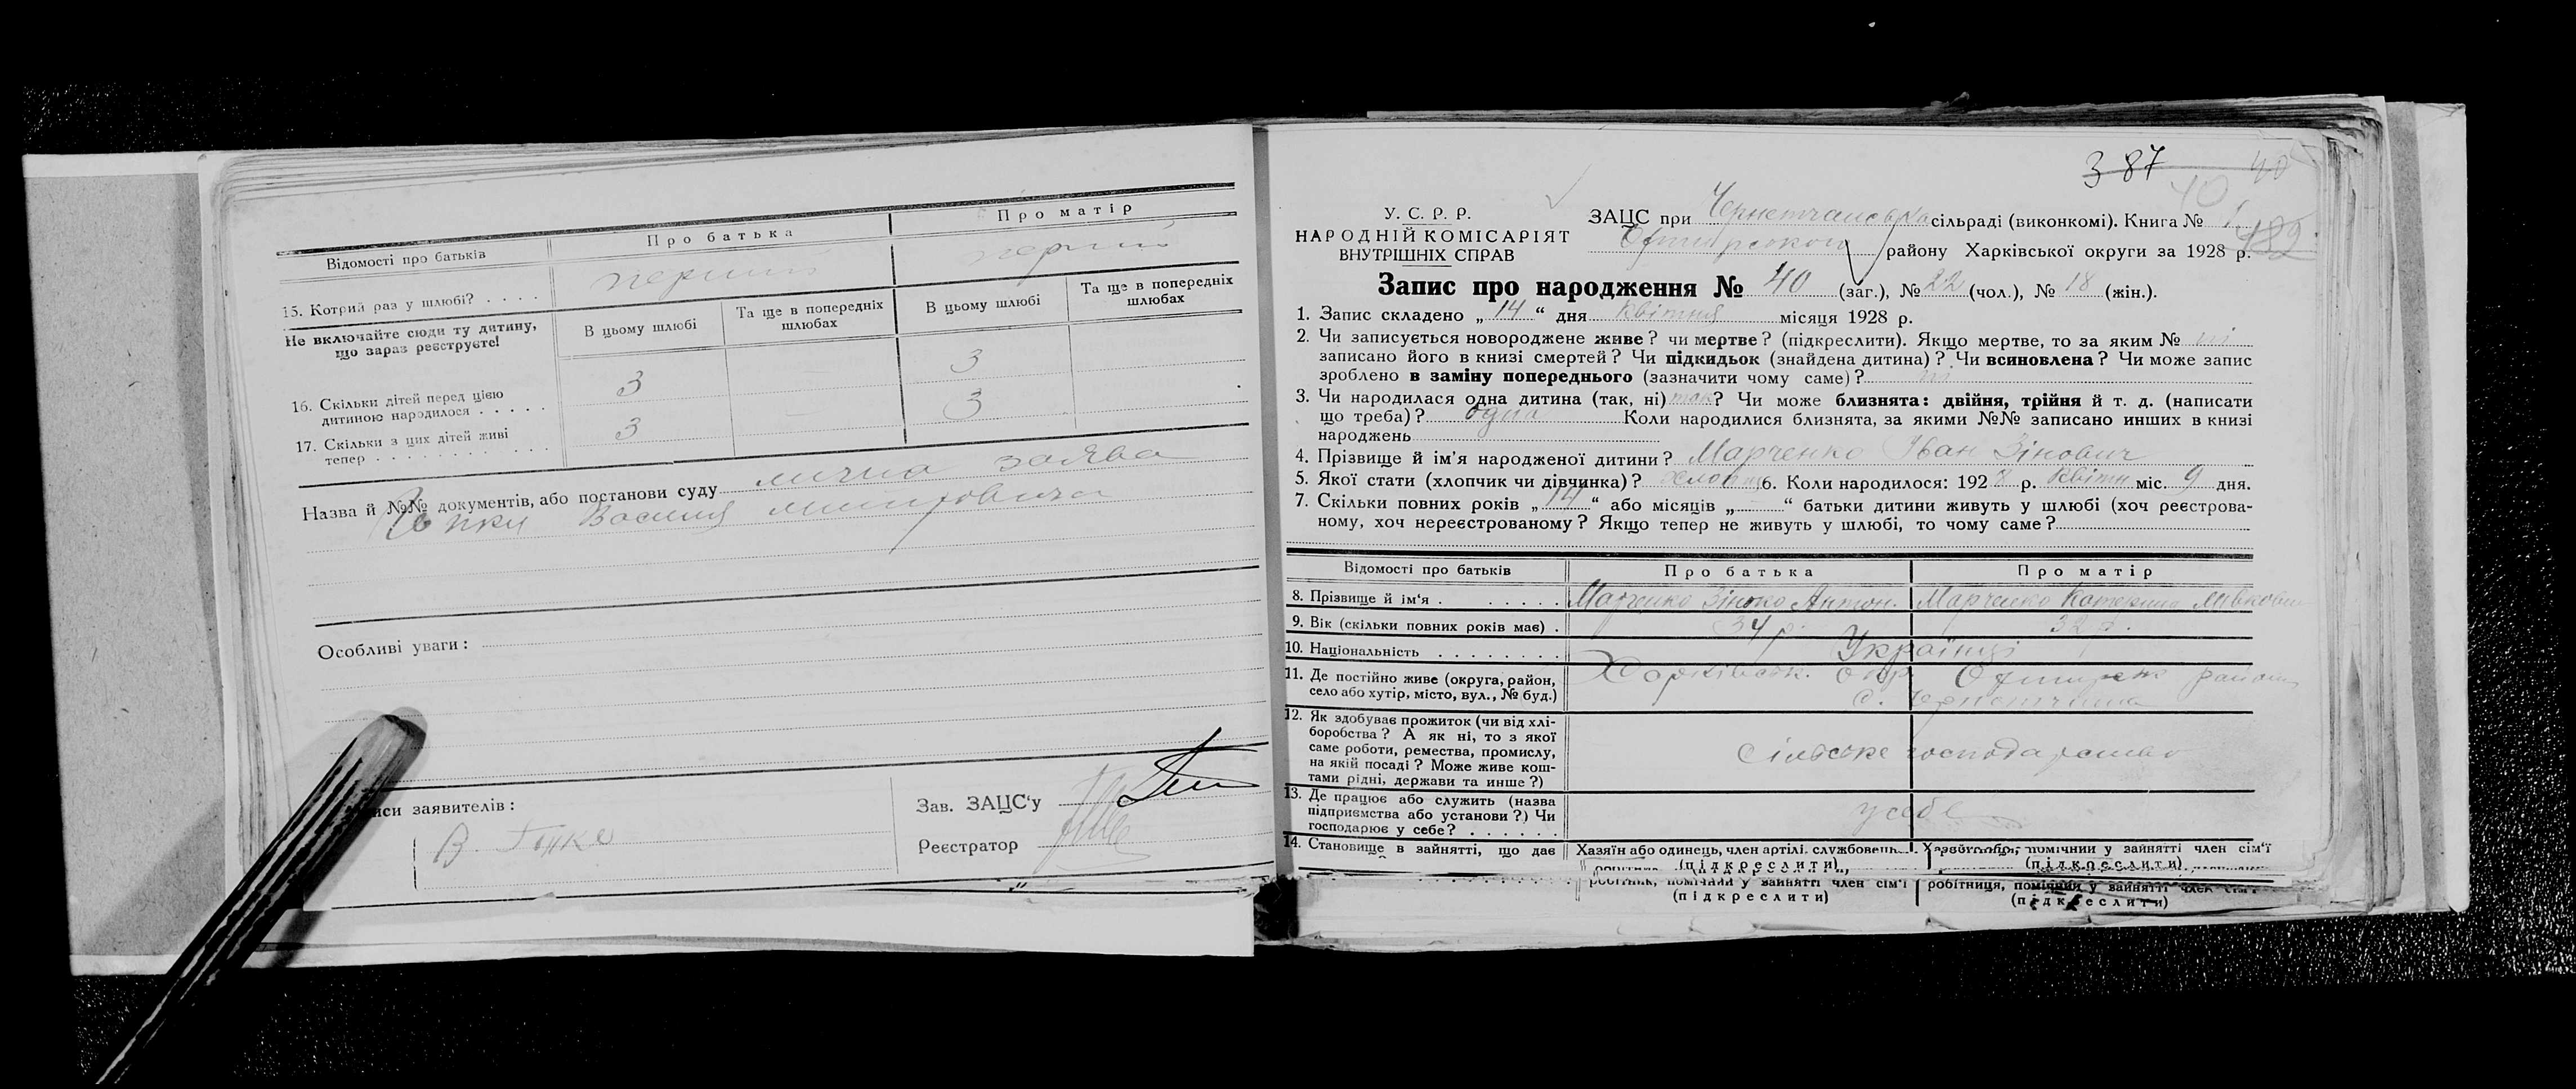 Відомості про батьків
Про батька
Про матір
15. Котрий раз у шлюбі? . . . .
перший
перший
Не включайте сюди ту дитину, що зараз реєструєте!
В цьому шлюбі
Та ще в попередніх шлюбах
В цьому шлюбі
Та ще в попередніх шлюбах
16. Скільки дітей перед цією
дитиною народилося . . . . .
3
3
17. Скільки з цих дітей живі
тепер . . . . . . . . . . . .
3
3
Назва й №№ документів, або постанови суду лична заява
Василя
Особливі уваги:
заявителів:
Зав. ЗАЦС'у
В.
Реєстратор
3 87
40
40
У. С. Р. Р.
НАРОДНІЙ КОМІСАРІЯТ
ВНУТРІШНІХ СПРАВ
ЗАЦС при сільраді (виконкомі). Книга №
району Харківської округи за 1928 р.
Запис про народження № 40 (заг.), № 22 (чол.), № 18 (жін.).
1. Запис складено „ 14 “ дня квітня місяця 1928 р.
2. Чи записується новороджене живе? чи мертве? (підкреслити). Якщо мертве, то за яким № ні
записано його в книзі смертей? Чи підкидьок (знайдена дитина)? Чи всиновлена? Чи може запис
зроблено в заміну попереднього (зазначити чому саме)? ні
3. Чи народилася одна дитина (так, ні) так? Чи може близнята: двійня, трійня й т. д. (написати
що треба)? одна Коли народилися близнята, за якими №№ записано инших в книзі
народжень
4. Прізвище й ім'я народженої дитини? Марченко Іван Зінович
5. Якої стати (хлопчик чи дівчинка)? 6. Коли народилося: 1928 р. квітн міс. 9 дня.
7. Скільки повних років „ 14 “ або місяців „ — “ батьки дитини живуть у шлюбі (хоч реєстрова-
ному, хоч нереєстрованому? Якщо тепер не живуть у шлюбі, то чому саме?
Відомості про батьків
Про батька
Про матір
8. Прізвище й ім'я . . . . . .
Марченко Зінько Антон.
Марченко Катерина
9. Вік (скільки повних років має) .
34 р.
32 р.
10. Національність . . . . . . . .
Українці
11. Де постійно живе (округа, район,
село або хутір, місто, вул., № буд.)
Харківськ. окр. район
с.
12. Як здобуває прожиток (чи від хлі-
боробства? А як ні, то з якої
саме роботи, ремества, промислу,
на якій посаді? Може живе кош-
тами рідні, держави та инше?)
сільське господарство
13. Де працює або служить (назва
підприємства або установи?) Чи
господарює у себе? . . . . . .
у себе
14. Становище в зайнятті, що дає
Хазяїн або одинець, член артілі, службовець
(підкреслити)
помічник у зайнятті член сім'ї
(підкреслити)
робітник, помічник у зайнятті член сім'ї
(підкреслити)
робітниця, помічник у зайнятті член сім'ї
(підкреслити)